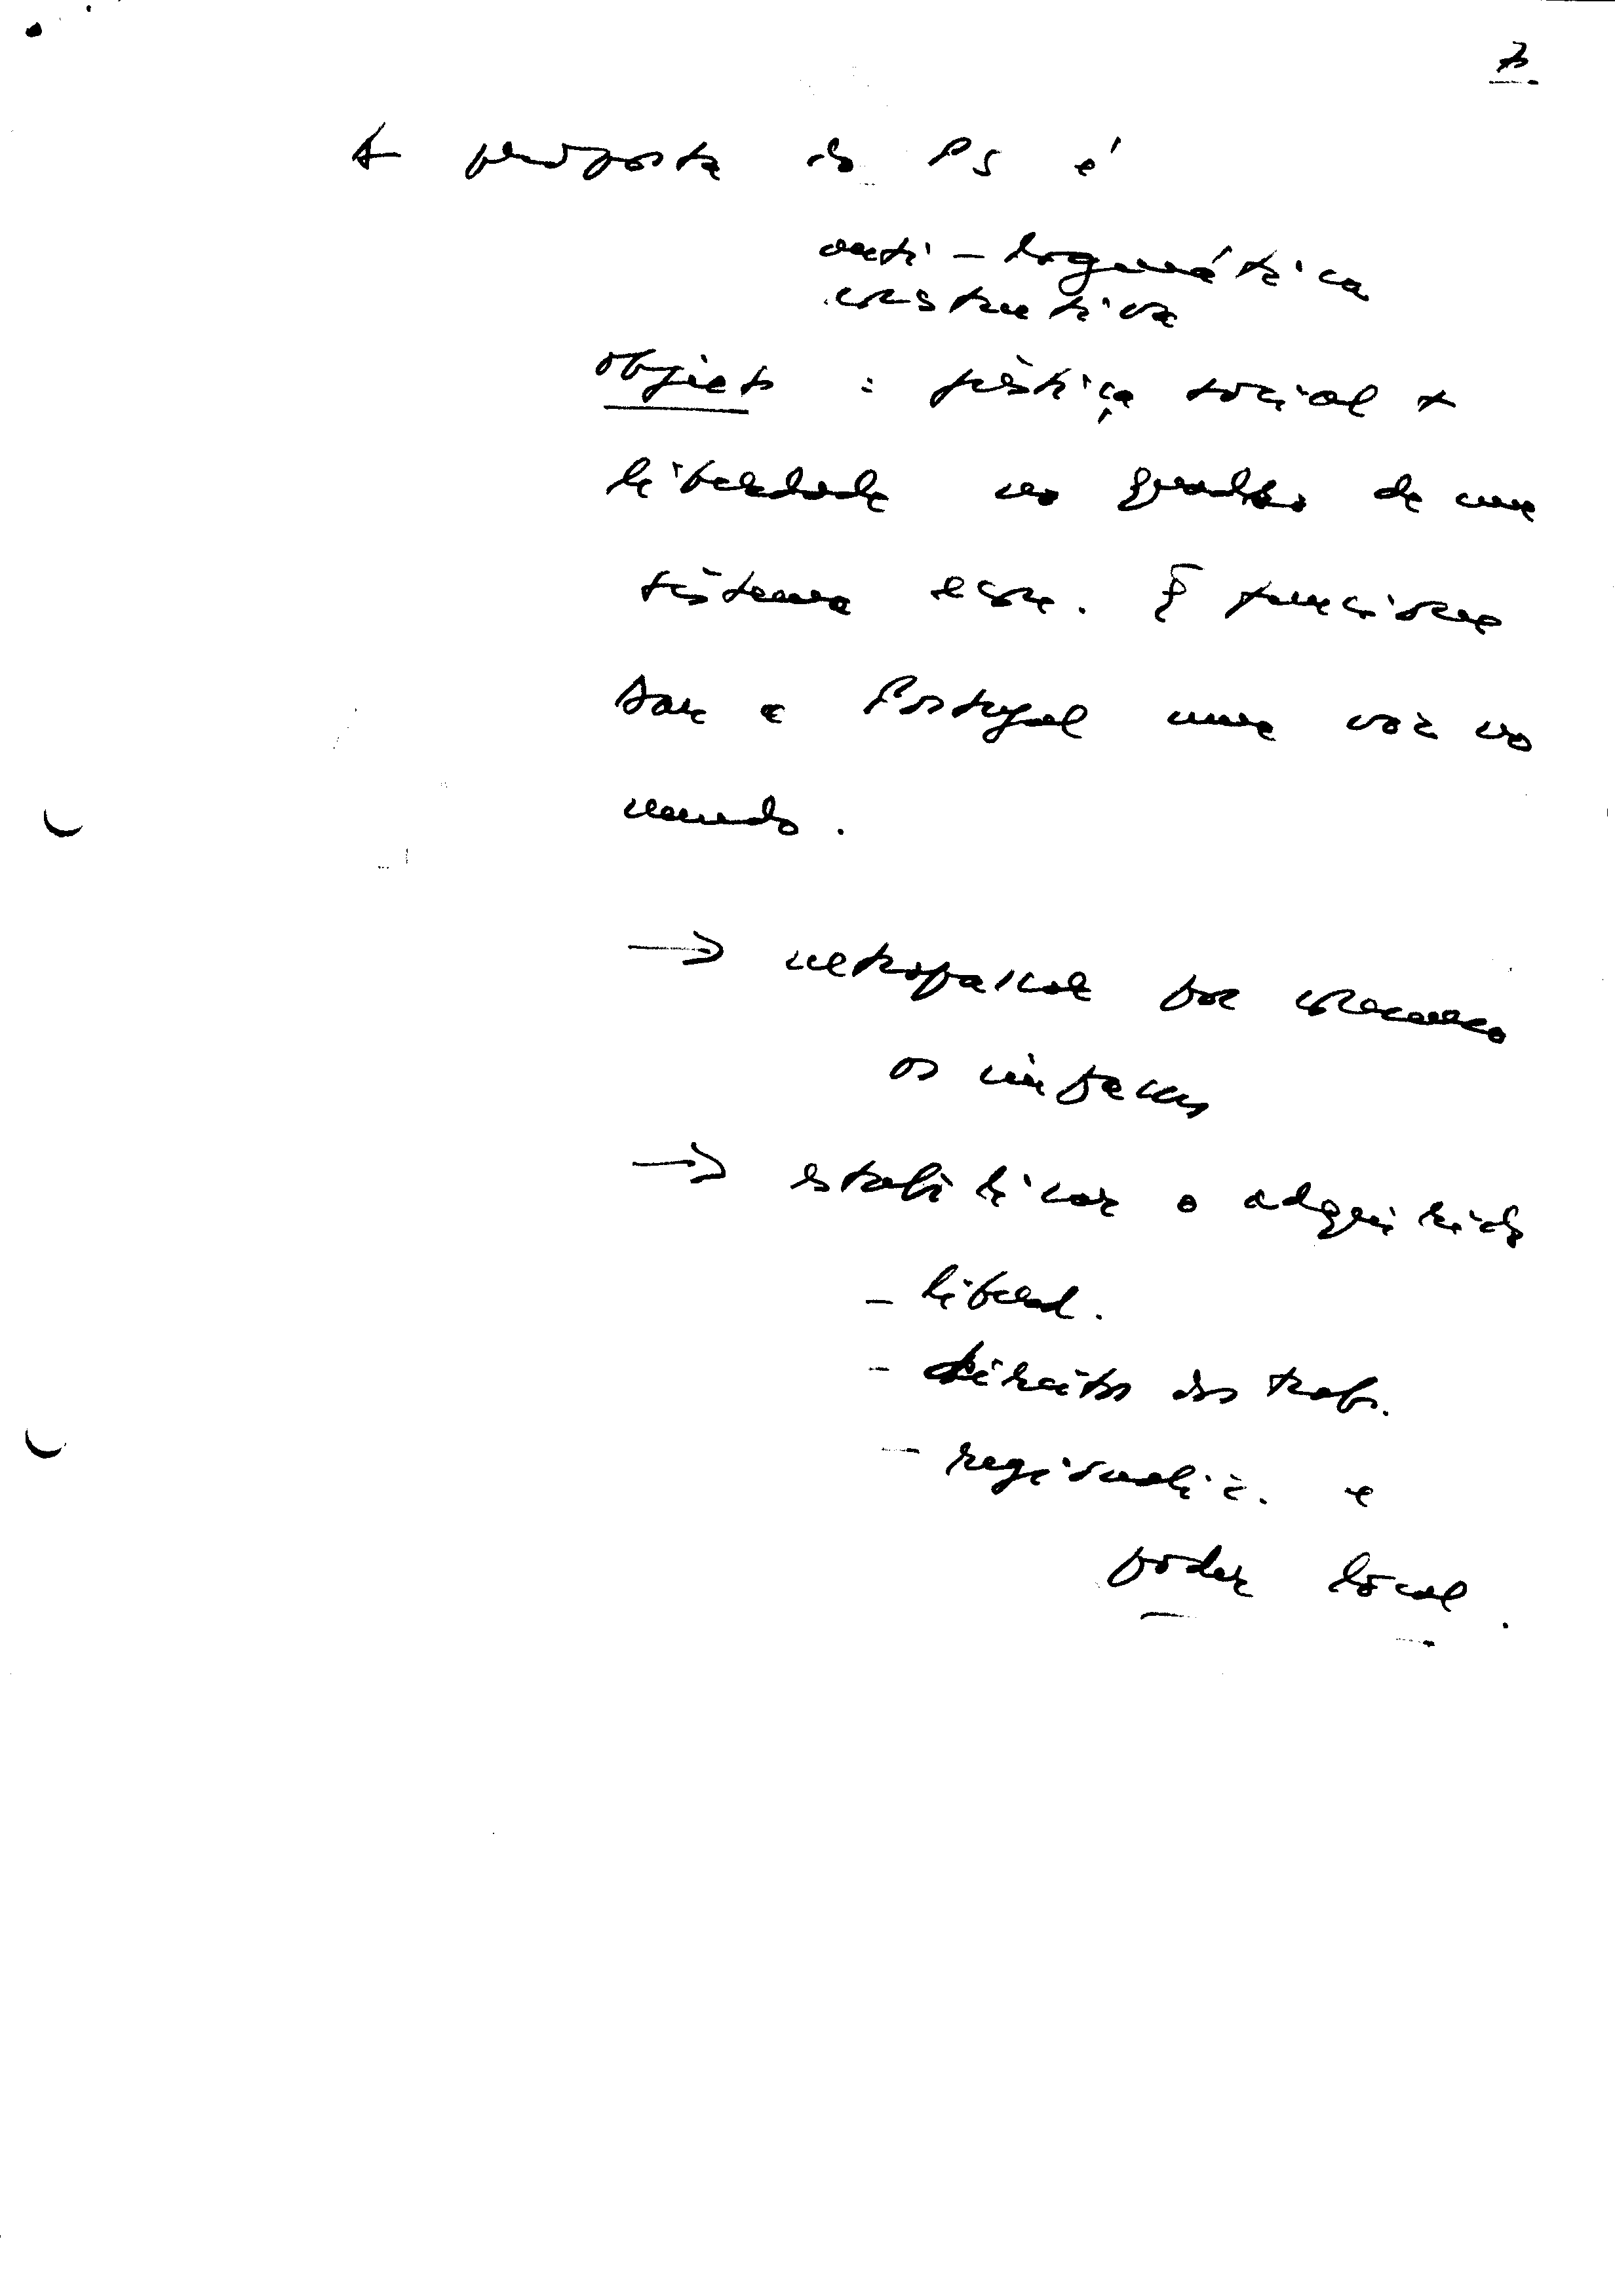 7
A proposta do PS é
anti-dogmática
construtiva
objecto : justiça social +
liberdade no quadro de uma
sistema econ. q funciona
dar a Portugal uma voz no
mundo.
→ ultrapassar por consenso
os
→ estabilizar o adquirido
- liberd.
- direitos dos trab.
- regionaliz. e
poder local.